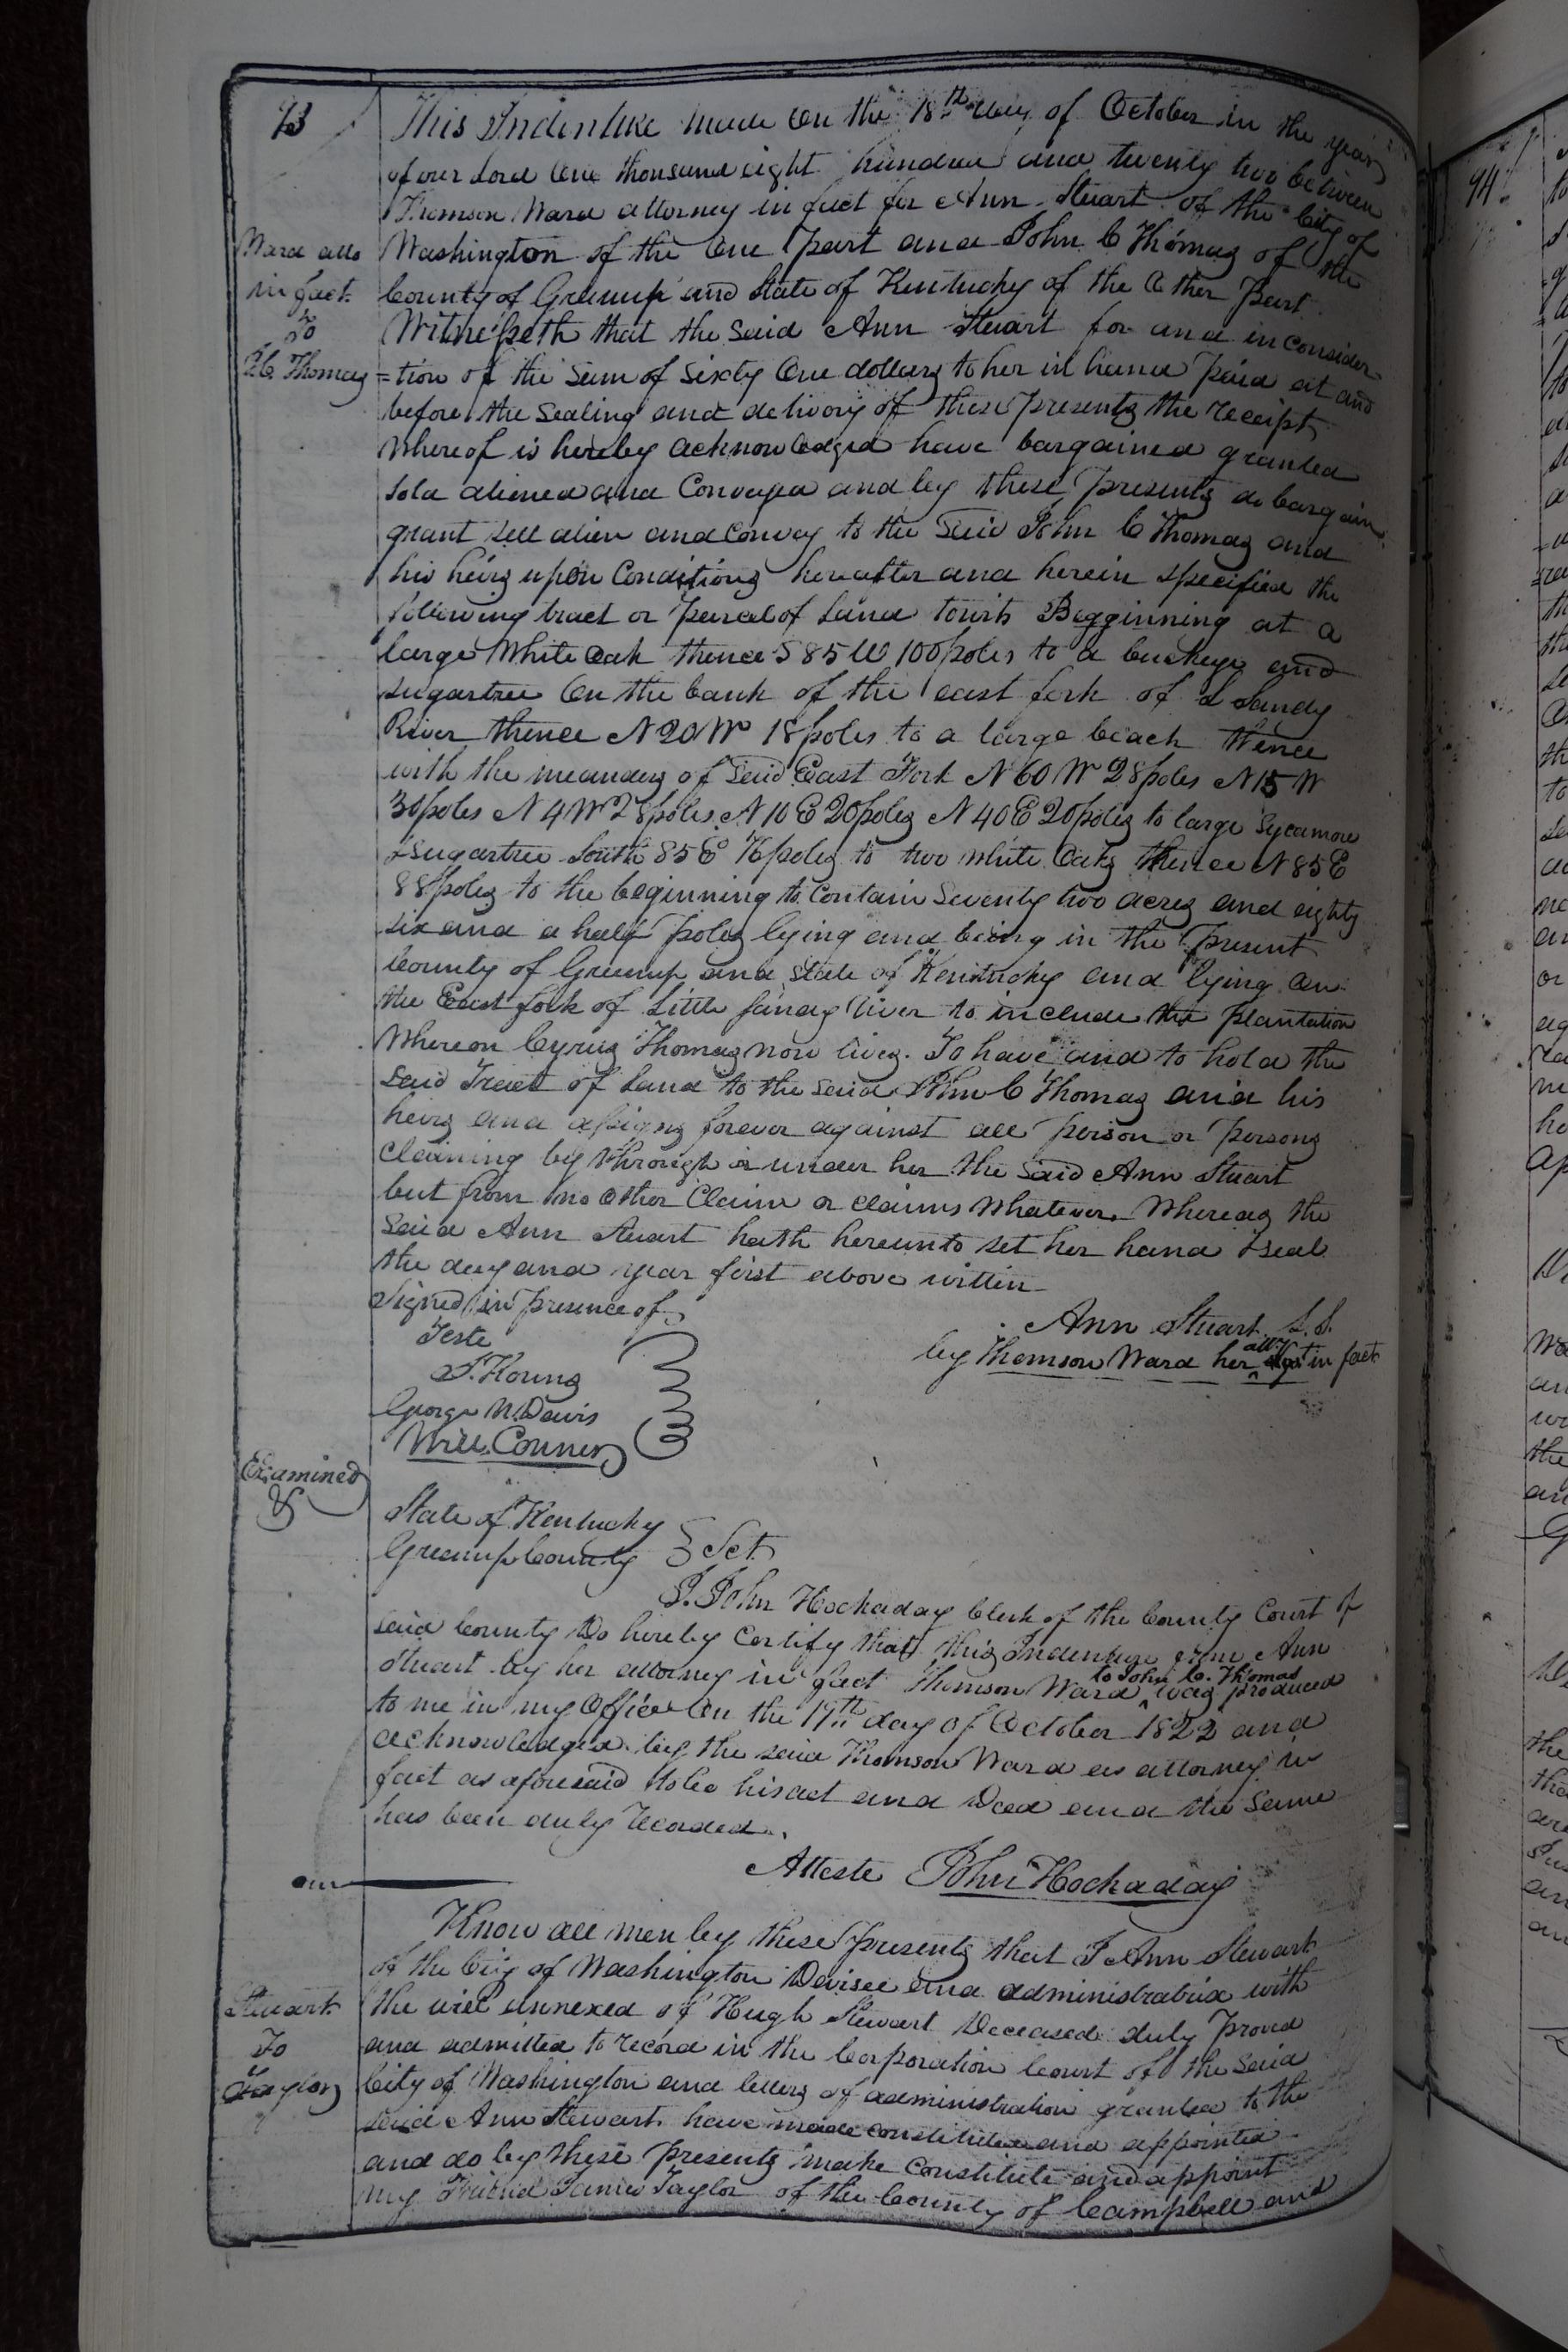 93
This Indenture made on the 18th day of October in the year
of our Lord One thousand eight hundred and twenty two between
Thomson Ward attorney in fact for Ann Stuart of the City of
Washington of the One part and John C Thomas of the
County of Greenup and State of Kentucky of the Other Part
Witnesseth that the said Ann Stuart for and in consider
=tion of the Sum of Sixty One dollars to her in hand paid at and
before the Sealing and delivory of these presents the receipt
Whereof is hereby acknowledged have bargained granted
sold aliened and Conveyed and by these presents do bargain
grant sell alien and convey to the said John C Thomas and
his heirs upon Conditions hereafter and herein specified the
following tract or parcel of Land towit Begginning at a
large White Oak thence S 85 W 100 poles to a buckeye and
sugartree On the bank of the east fork of L Sandy
River thence N 20 W 18 poles to a large beach thence
with the meanders of said East Fork N 60 W 28 poles N 15 W
30 poles N 4 W 28 poles N 10 E 20 poles N 40 E 20 poles to large Sycamore
& sugartree South 85 E 76 poles to two white Oaks thence N 85 E
88 poles to the beginning to Contain Seventy two acres and eighty
six and a half poles lying and being in the present
County of Greenup and State of Kentucky and lying on
the East fork of Little Sandy River to include the plantation
Whereon Cyrus Thomas now lives. To have and to hold the
said Tract of Land to the said John C Thomas and his
heirs and assigns forever against all person or persons
Claiming by through or under her the said Ann Stuart
but from no Other Claim or claims Whatever. Whereas the
said Ann Stuart hath hereunto set her hand & seal
the day and year first above written
Signed in presence of
Ann Stuart L.S.
by Thomson Ward her atty in fact
Teste
George N. Davis
Will. Conner
Ward atto
in fact
To
J.C. Thomas
Examined
State of Kentucky
Greenup County } Sct.
I. John Hockaday Clerk of the County Court of
said County Do hereby Certify that this Indenture from Ann
Stuart by her attorney in fact Thomson Ward to John C. Thomas was produced
to me in my Office On the 19th day of October 1822 and
acknowledged by the said Thomson Ward as attorney in
fact as aforesaid to be his act and Deed and the same
has been duly recorded.
Atteste John Hockaday
Know all men by these presents that I Ann Stewart
of the City of Washington Devisee and administratrix with
the will annexed of Hugh Stewart Deceased duly Proved
and admitted to record in the Corporation Court of the said
City of Washington and letters of administration granted to the
said Ann Stewart have made constituted and appointed
and do by these presents make Constitute and appoint
my Friend James Taylor of the County of Campbell and
Stuart
To
Taylor
94